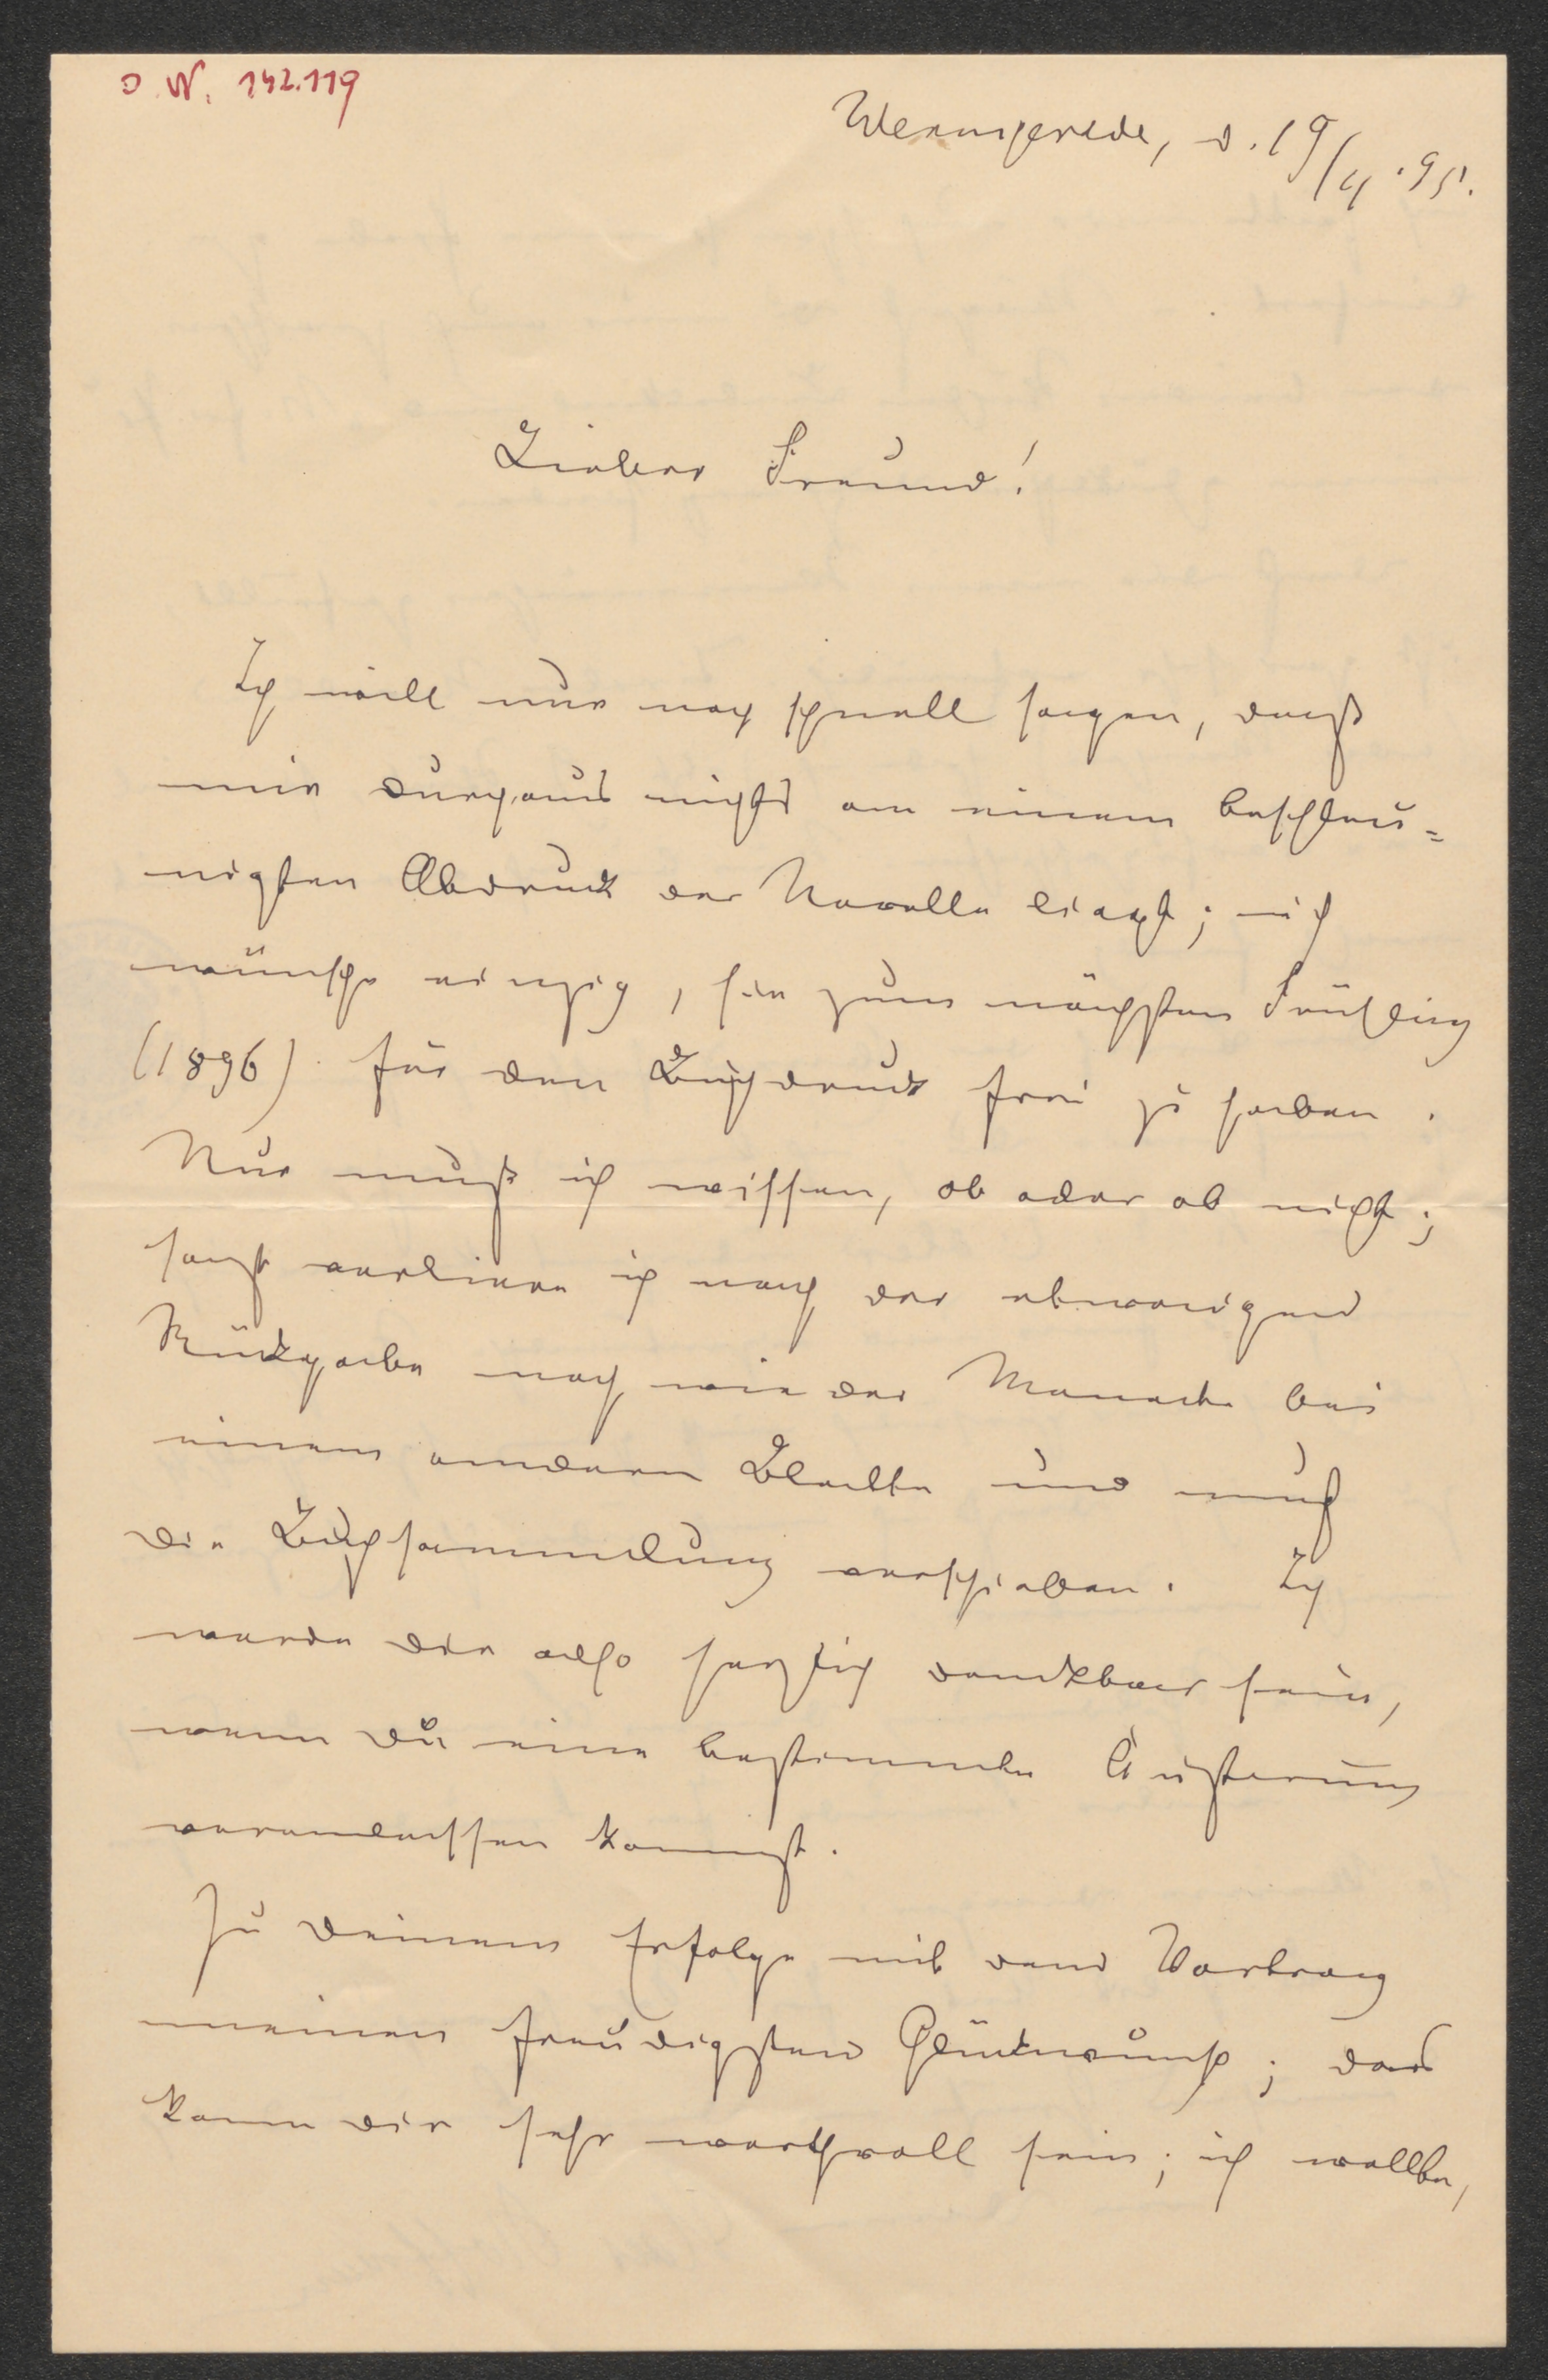 J. N. 142.119
Wernigerode, d. 19/4. 95.
Lieber Freund!
Ich will nur noch schnell sagen, daß
mir durchaus nichts an einem beschleu=
nigten Abdruck der Novelle liegt; ich
wünsche einzig, sie zum nächsten Frühling
(1896) für den Buchdruck frei zu haben.
Nur muß ich wissen, ob oder ob nicht;
sonst verliere ich nach der etwaigen
Rückgabe noch wieder Monate bei
einem andern Blatte und muß
die Buchsammlung verschieben. Ich
werde dir also herzlich dankbar sein,
wenn du eine bestimmte Äußerung
veranlassen kannst.
Zu deinem Erfolge mit dem Vortrag
meinen freudigsten Glückwunsch; das
kann dir sehr werthvoll sein; ich wollte,